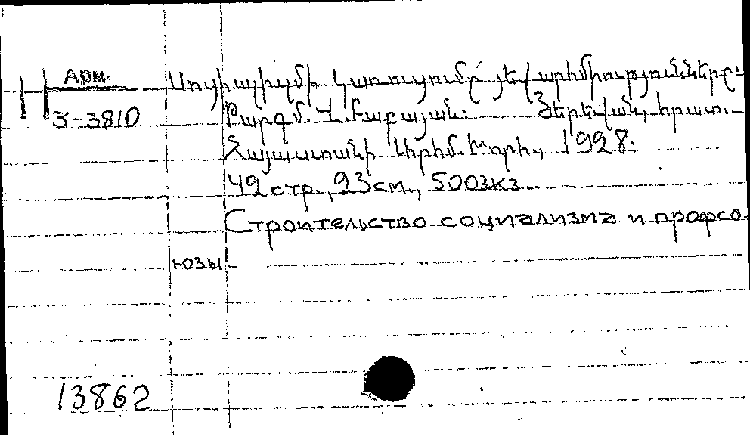 Арм.
3-3810
Սոցիալիզմի կառուցումը յեվ արհմիությունները.
Թարգմ. Հ. Բաբայան. Յերեվան, հրատ.
Հայաստանի խորհ., 1928.
42 стр., 23 см., 500 экз.
Строительство социализма и профсо-
юзы.
13862